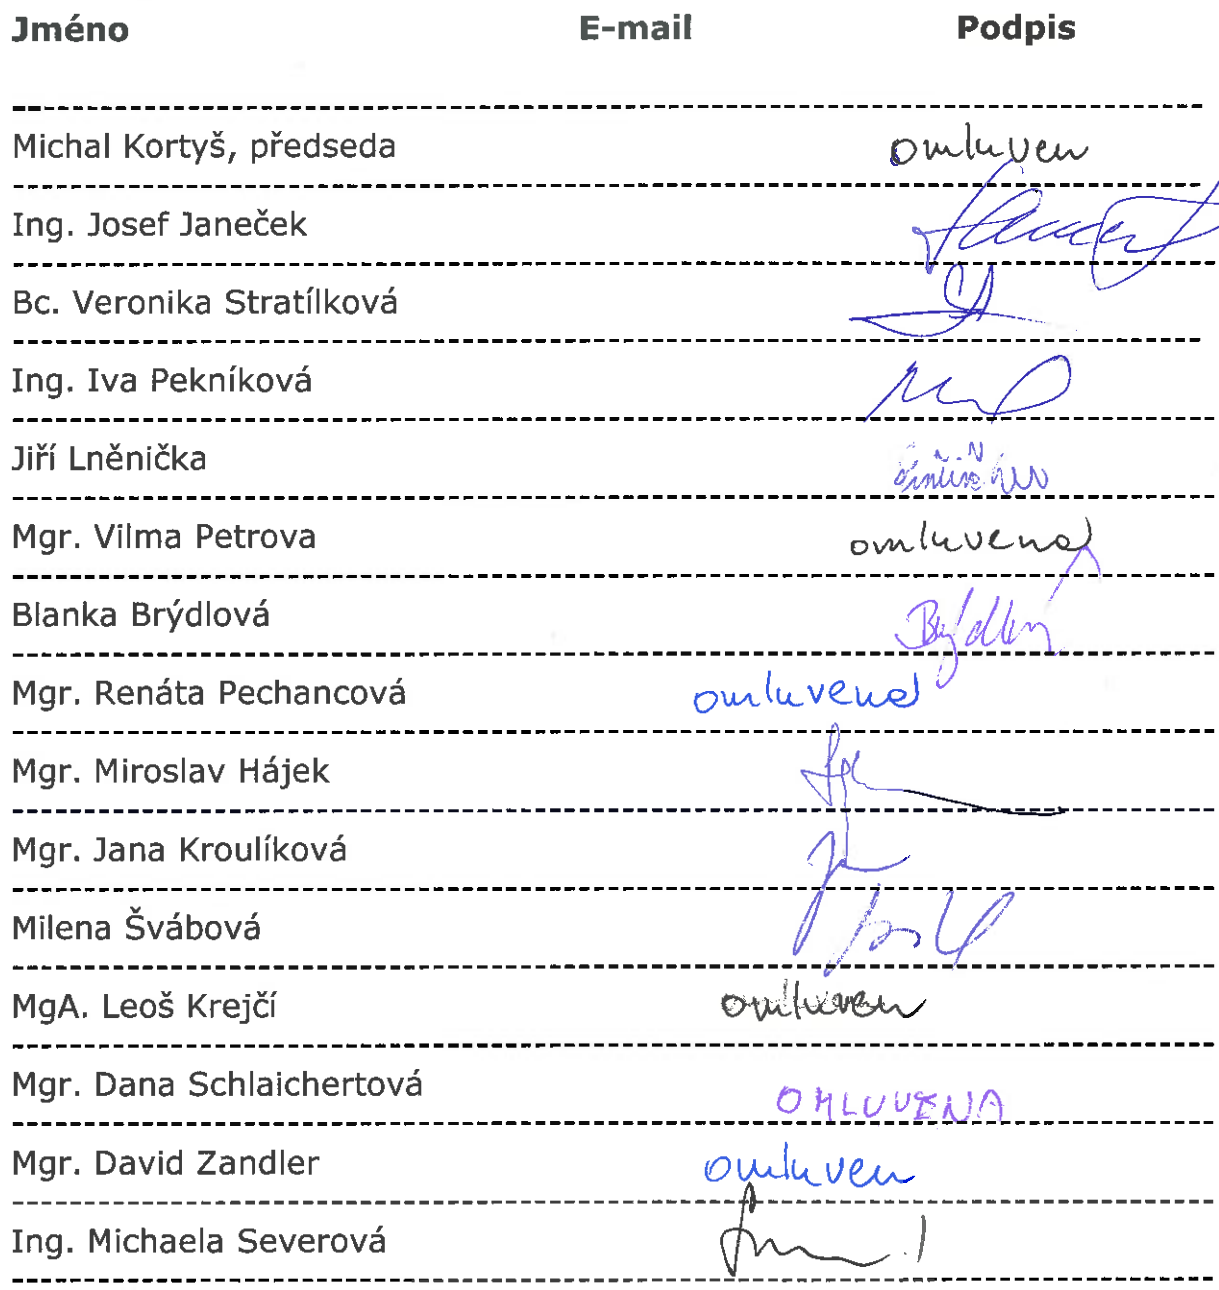 Jméno E-mail Podpis
Michal Kortyš, předseda omluven
Ing. Josef Janeček
Bc. Veronika Stratílková
Ing. Iva Pekníková
Jiří Lněnička
Mgr. Vilma Petrova omluvena
Blanka Brýdlová
Mgr. Renáta Pechancová omluvena
Mgr. Miroslav Hájek
Mgr. Jana Kroulíková
Milena Švábová
MgA. Leoš Krejčí omluven
Mgr. Dana Schlaichertová OMLUVENA
Mgr. David Zandler omluven
Ing. Michaela Severová